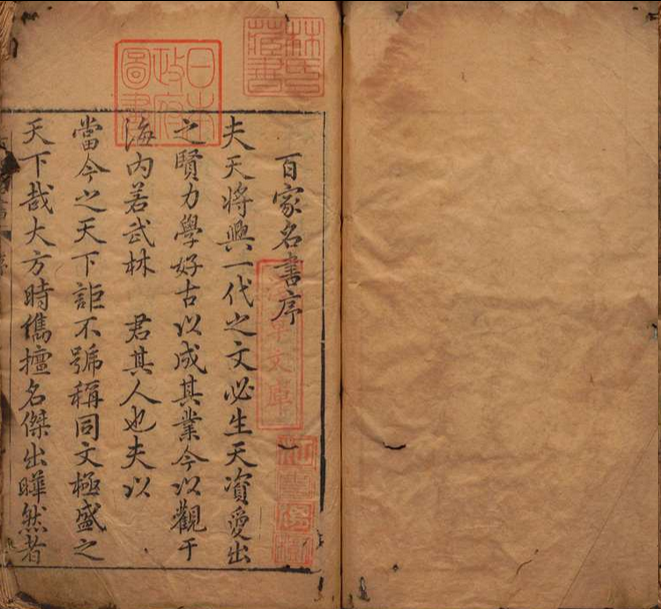 百家名書序
夫天將興一代之文必生天資愛出
之賢力學好古以成其業今以觀于
海內若武林 君其人也夫以
當今之天下詎不號稱同文極盛之
天下哉大方時儁擅名傑出曄然者
日本
政府
圖書
林氏
藏書
草文庫